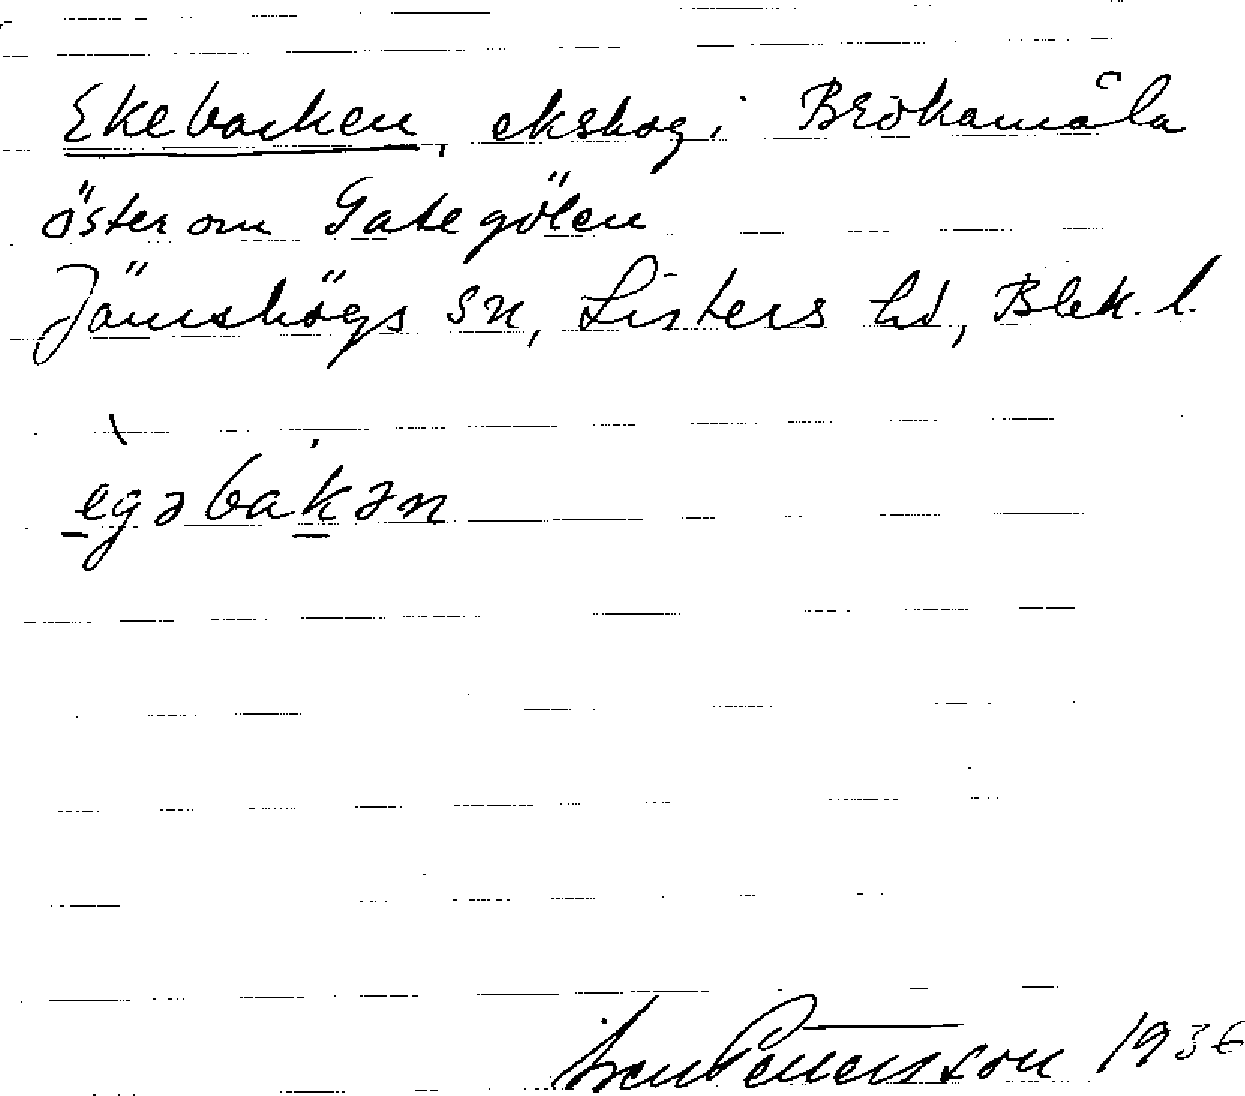 Ekebacken, ekskog i Brokamåla
öster om Gategölen
Jämshögs sn, Listers hd, Blek. l.
ègəbak̍ən
Pettersson 1936